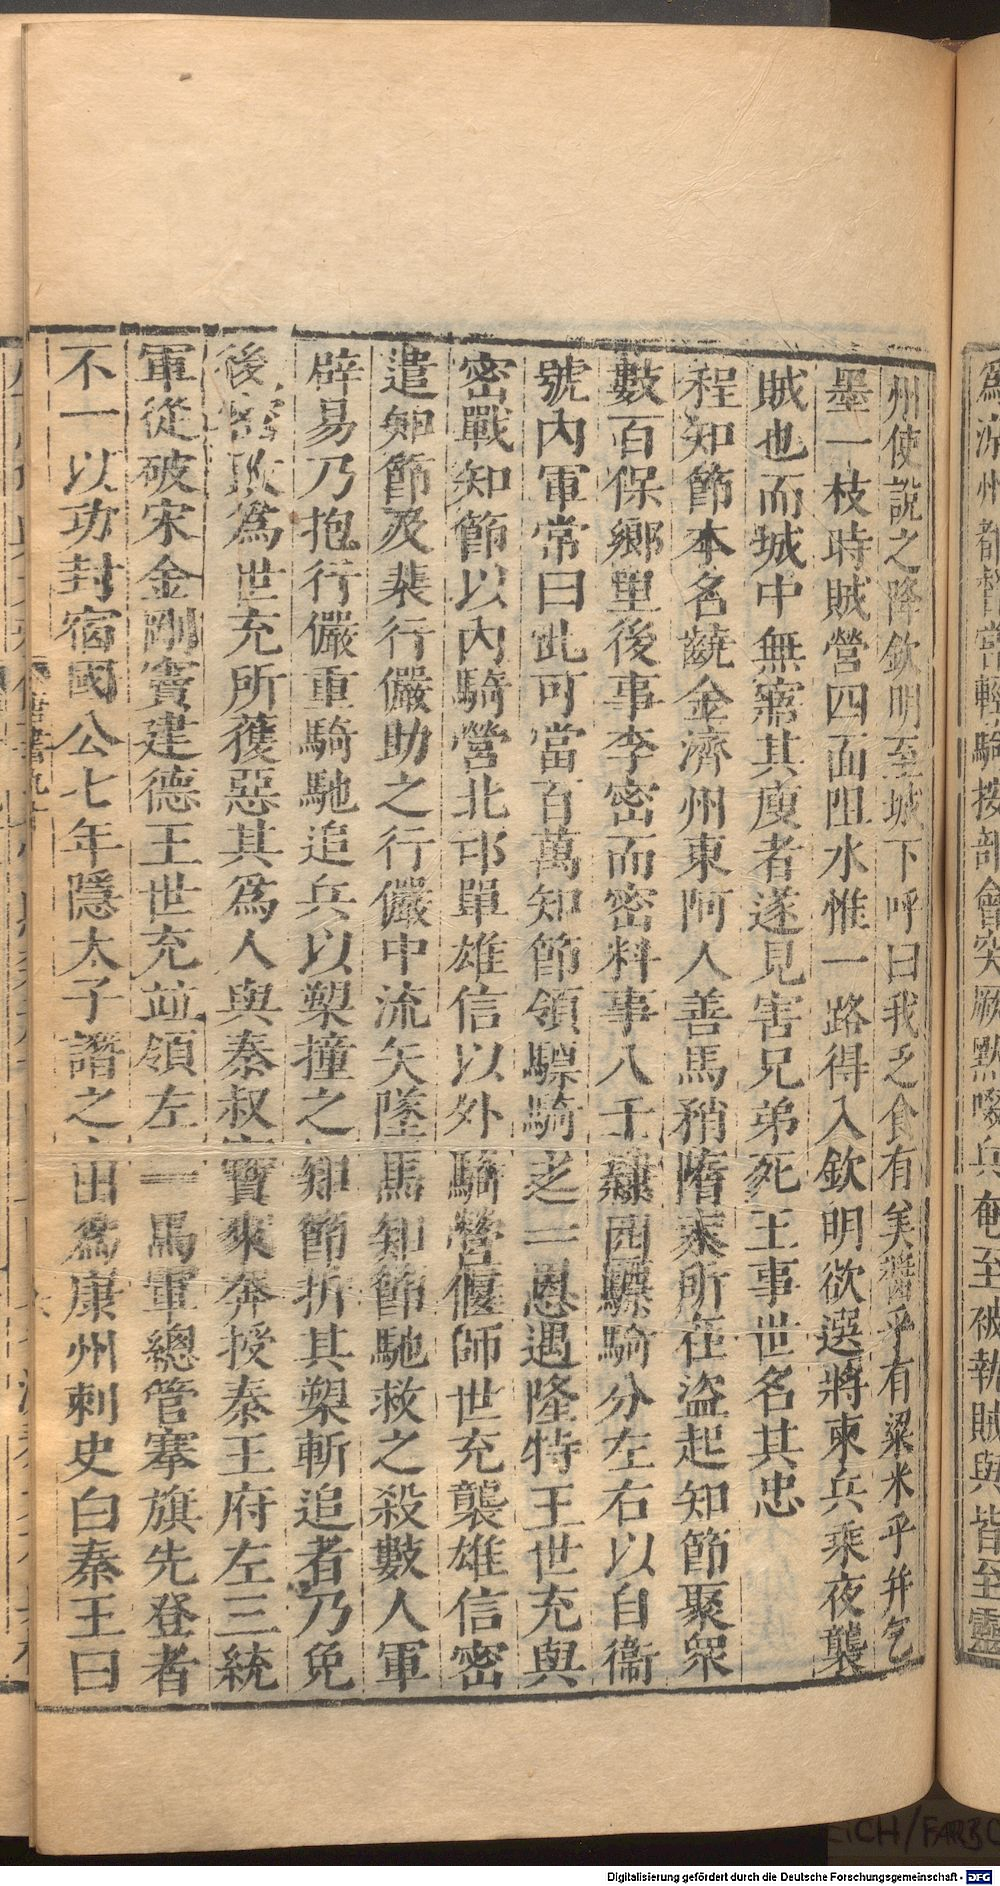 爲涼州都督嘗輕騎按部會突厥黙啜兵奄至被執賊與皆至靈
州使說之降欽明至城下呼曰我乏食有美醬乎有粱米乎幷乞
墨一枝時賊營四面阻水惟一路得入欽明欲選將柬兵乘夜襲
賊也而城中無寤其廋者遂見害兄弟死王事世名其忠
程知節本名齩金濟州東阿人善馬矟隋末所在盗起知節聚衆
數百保鄉里後事李密而密料事八千隸四驃騎分左右以自衞
號內軍常曰此可當百萬知節領驃騎之一恩遇隆特王世充與
密戰知節以內騎營北邙單雄信以外騎營偃師世充襲雄信密
遣知節及裴行儼助之行儼中流矢墜馬知節馳救之殺數人軍
辟易乃抱行儼重騎馳追兵以槊撞之知節折其槊斬追者乃免
後密敗爲世充所獲惡其爲人與秦叔寶來奔授秦王府左三統
軍從破宋金剛竇建德王世充並領左一馬軍總管搴旗先登者
不一以功封宿國公七年隱太子譖之出爲康州刺史白秦王曰
Digitalisierung gefördert durch die Deutsche Forschungsgemeinschaft - DFG